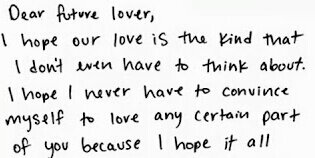 Dear future lover,
I hope our love is the kind that
I don't even have to think about.
I hope I never have to convince
myself to love any certain part
of you because I hope it all